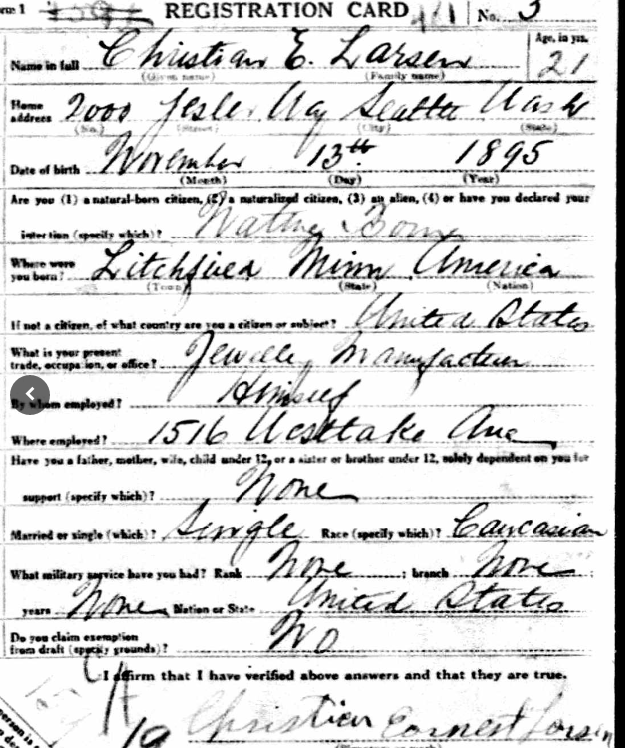 REGISTRATION CARD No. 3
Name in full Christian E. Larsen Age, in yrs. 21
(Given name) (Family name)
Home address 2000 Yesler Way Seattle Wash
(No.) (Street) (City) (State)
Date of birth November 13th 1895
(Month) (Day) (Year)
Are you (1) a natural-born citizen, (2) a naturalized citizen, (3) an alien, (4) or have you declared your
intention (specify which)? Native Born
Where were you born? Litchfield Minn America
(Town) (State) (Nation)
If not a citizen, of what country are you a citizen or subject? United States
What is your present trade, occupation, or office? Jewelley Manufacturer
By whom employed? Himself
Where employed? 1516 Westlake Ave
Have you a father, mother, wife, child under 12, or a sister or brother under 12, solely dependent on you for
support (specify which)? None
Married or single (which)? Single Race (specify which)? Caucasian
What military service have you had? Rank None ; branch None ;
years None Nation or State United States
Do you claim exemption from draft (specify grounds)? No
I affirm that I have verified above answers and that they are true.
19 Christian Earnest Larsen